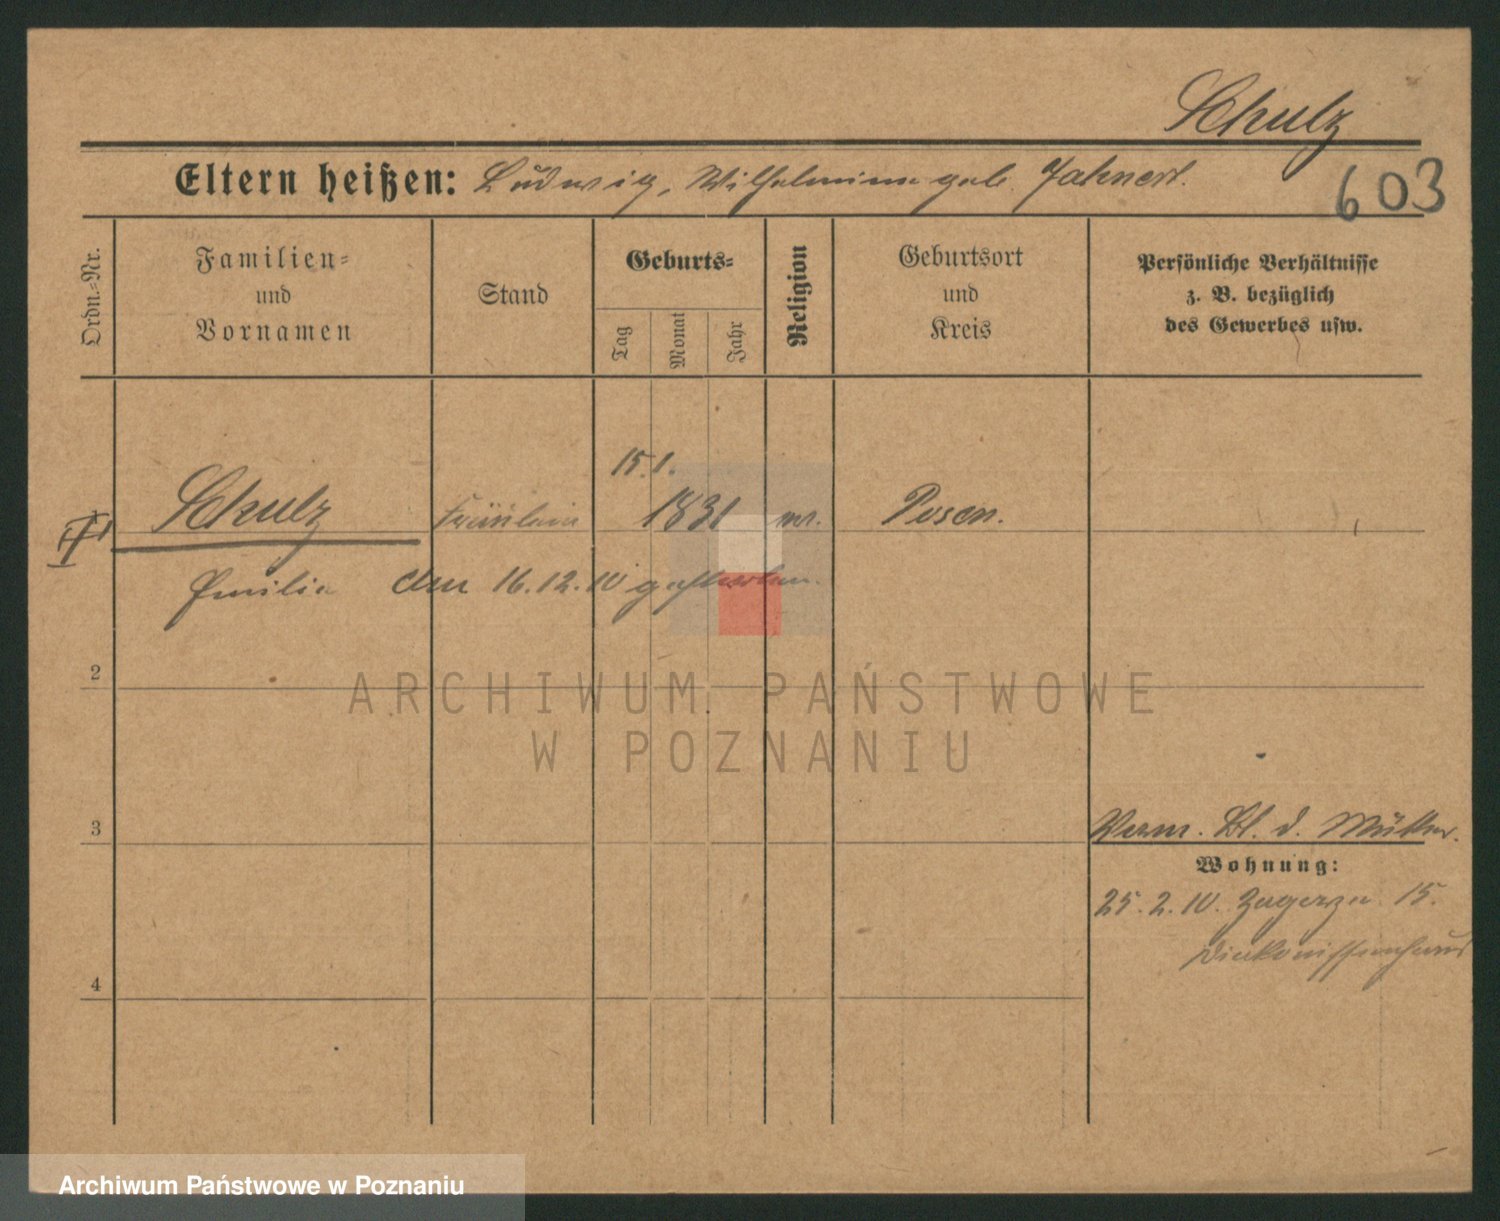 Schulz
Eltern heißen: Ludwig, Wilhelmine geb. Jahnert.
603
Ordn.-Nr.
Familien-
und
Vornamen
Stand
Geburts-
Tag
Monat
Jahr
Religion
Geburtsort
und
Kreis
Persönliche Verhältnisse
z. B. bezüglich
des Gewerbes usw.
15.1.
Schulz Fräulein 1831 Posen.
Emilie den 16.12.10 gestorben.
2
ARCHIWUM PAŃSTWOWE
W POZNANIU
3
Verm. St. d. Mutter.
Wohnung:
25.2.10. 15.
Diakonissenhaus
4
Archiwum Państwowe w Poznaniu